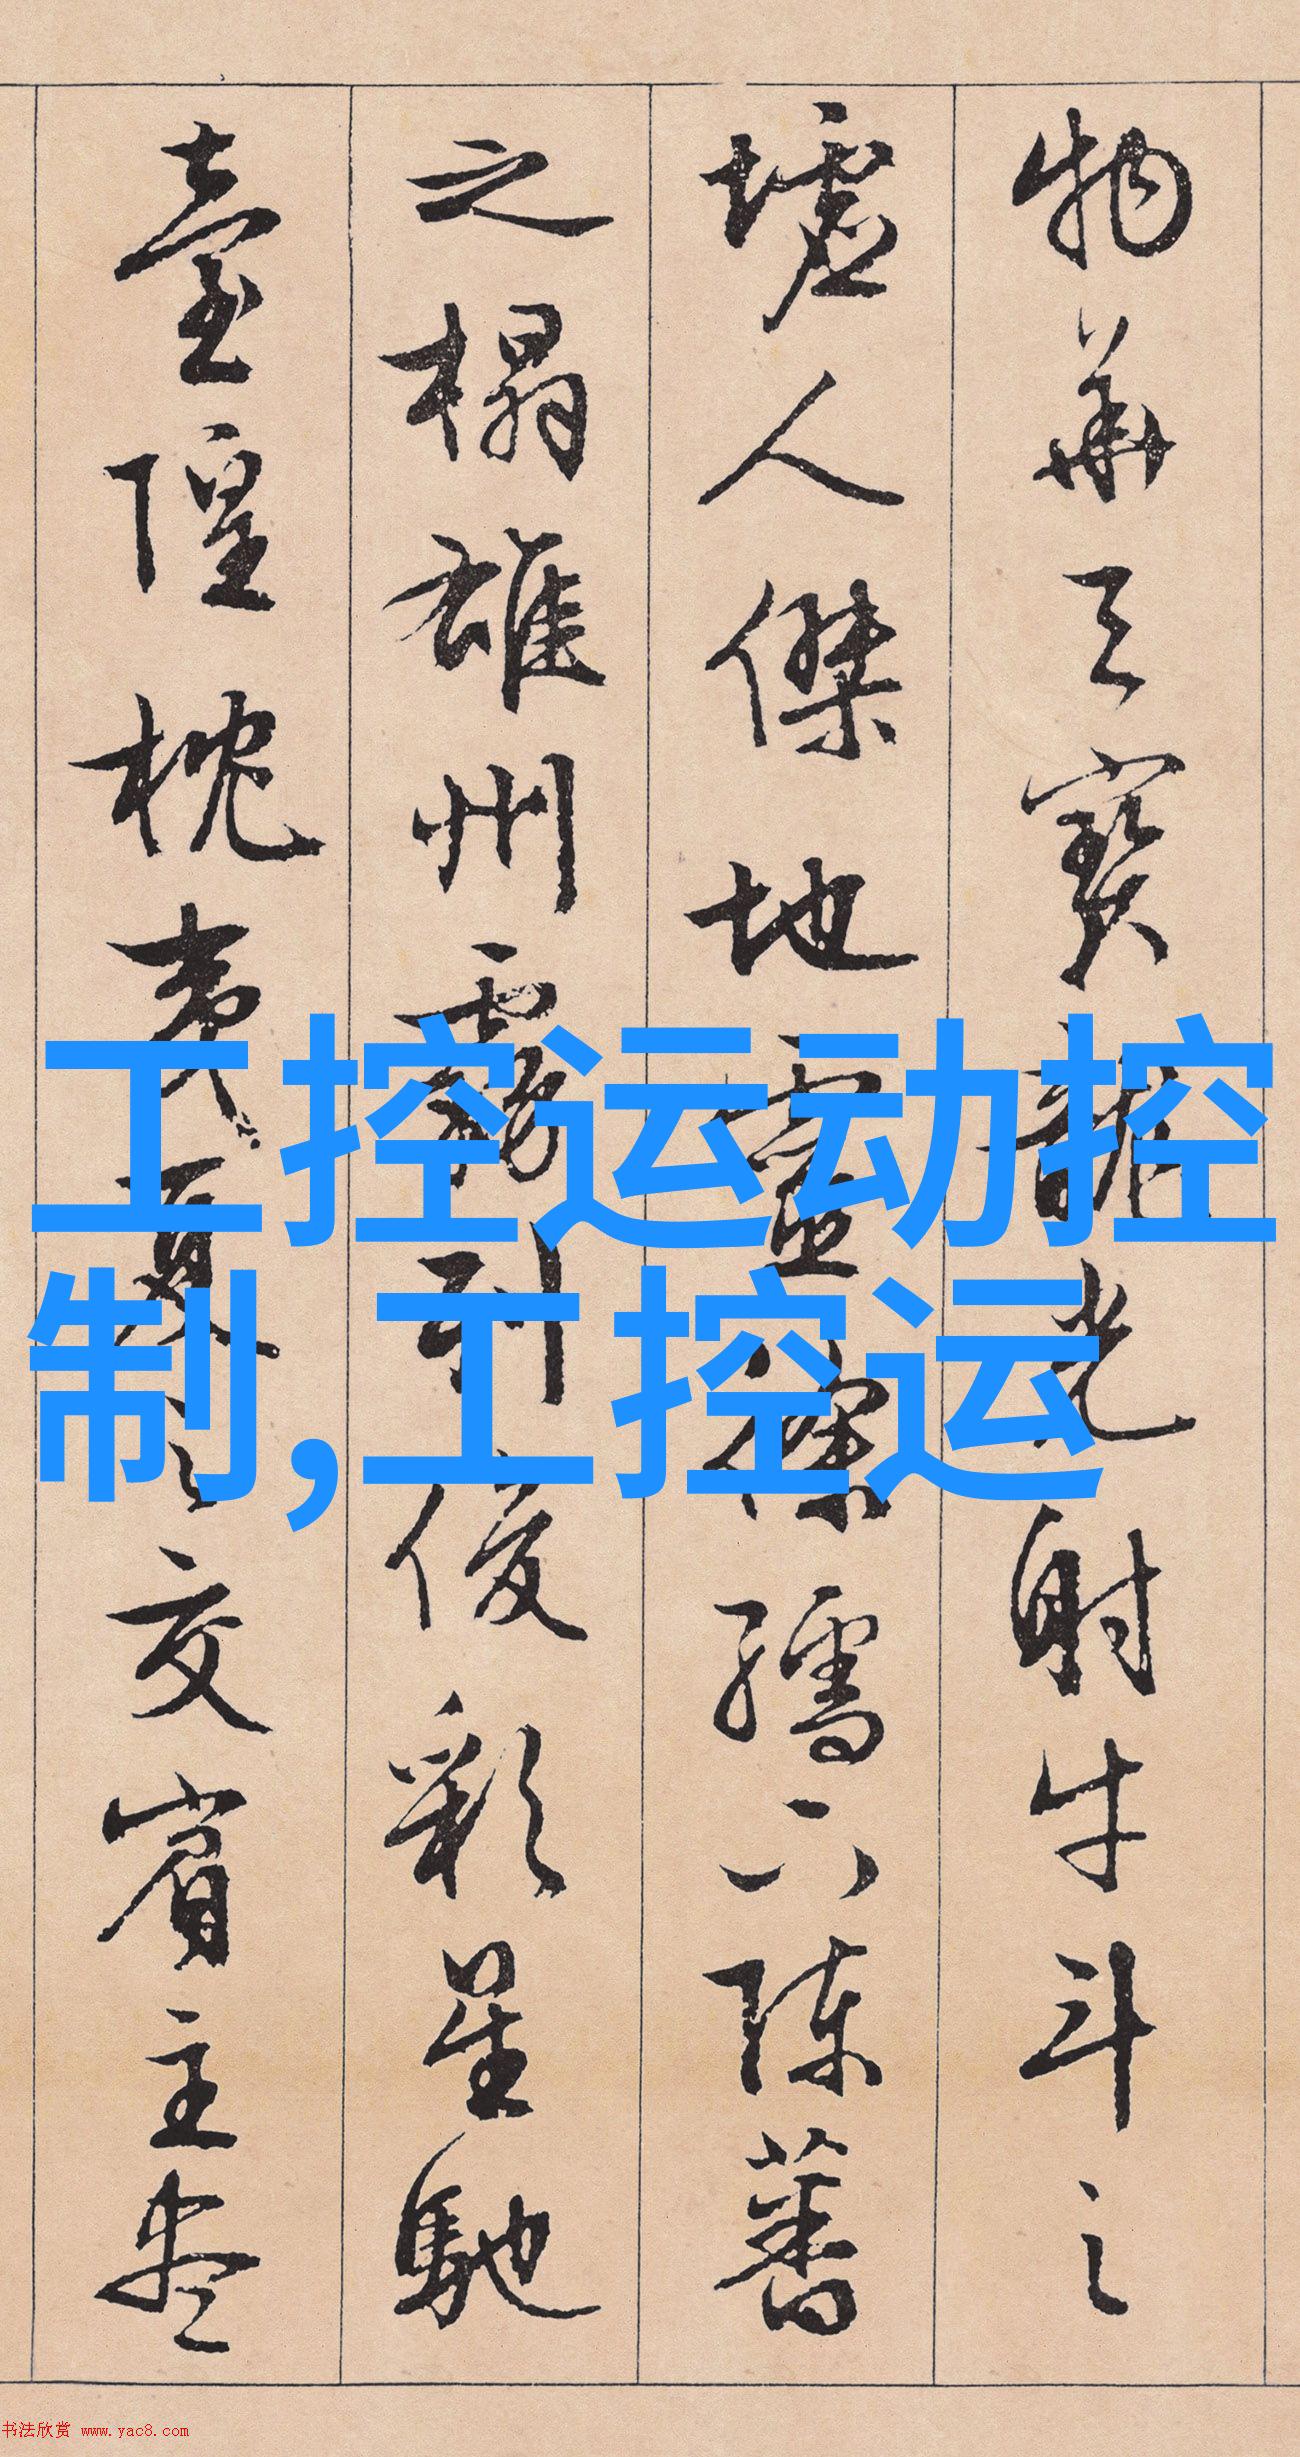 物華天寶龍光射牛斗之
墟人傑地靈傑孺下陳蕃
之榻雄州霧列俊彩星馳
臺隍枕夷夏之交賓主盡
工控运动控
制,工控运
书法欣赏 www.yac8.com